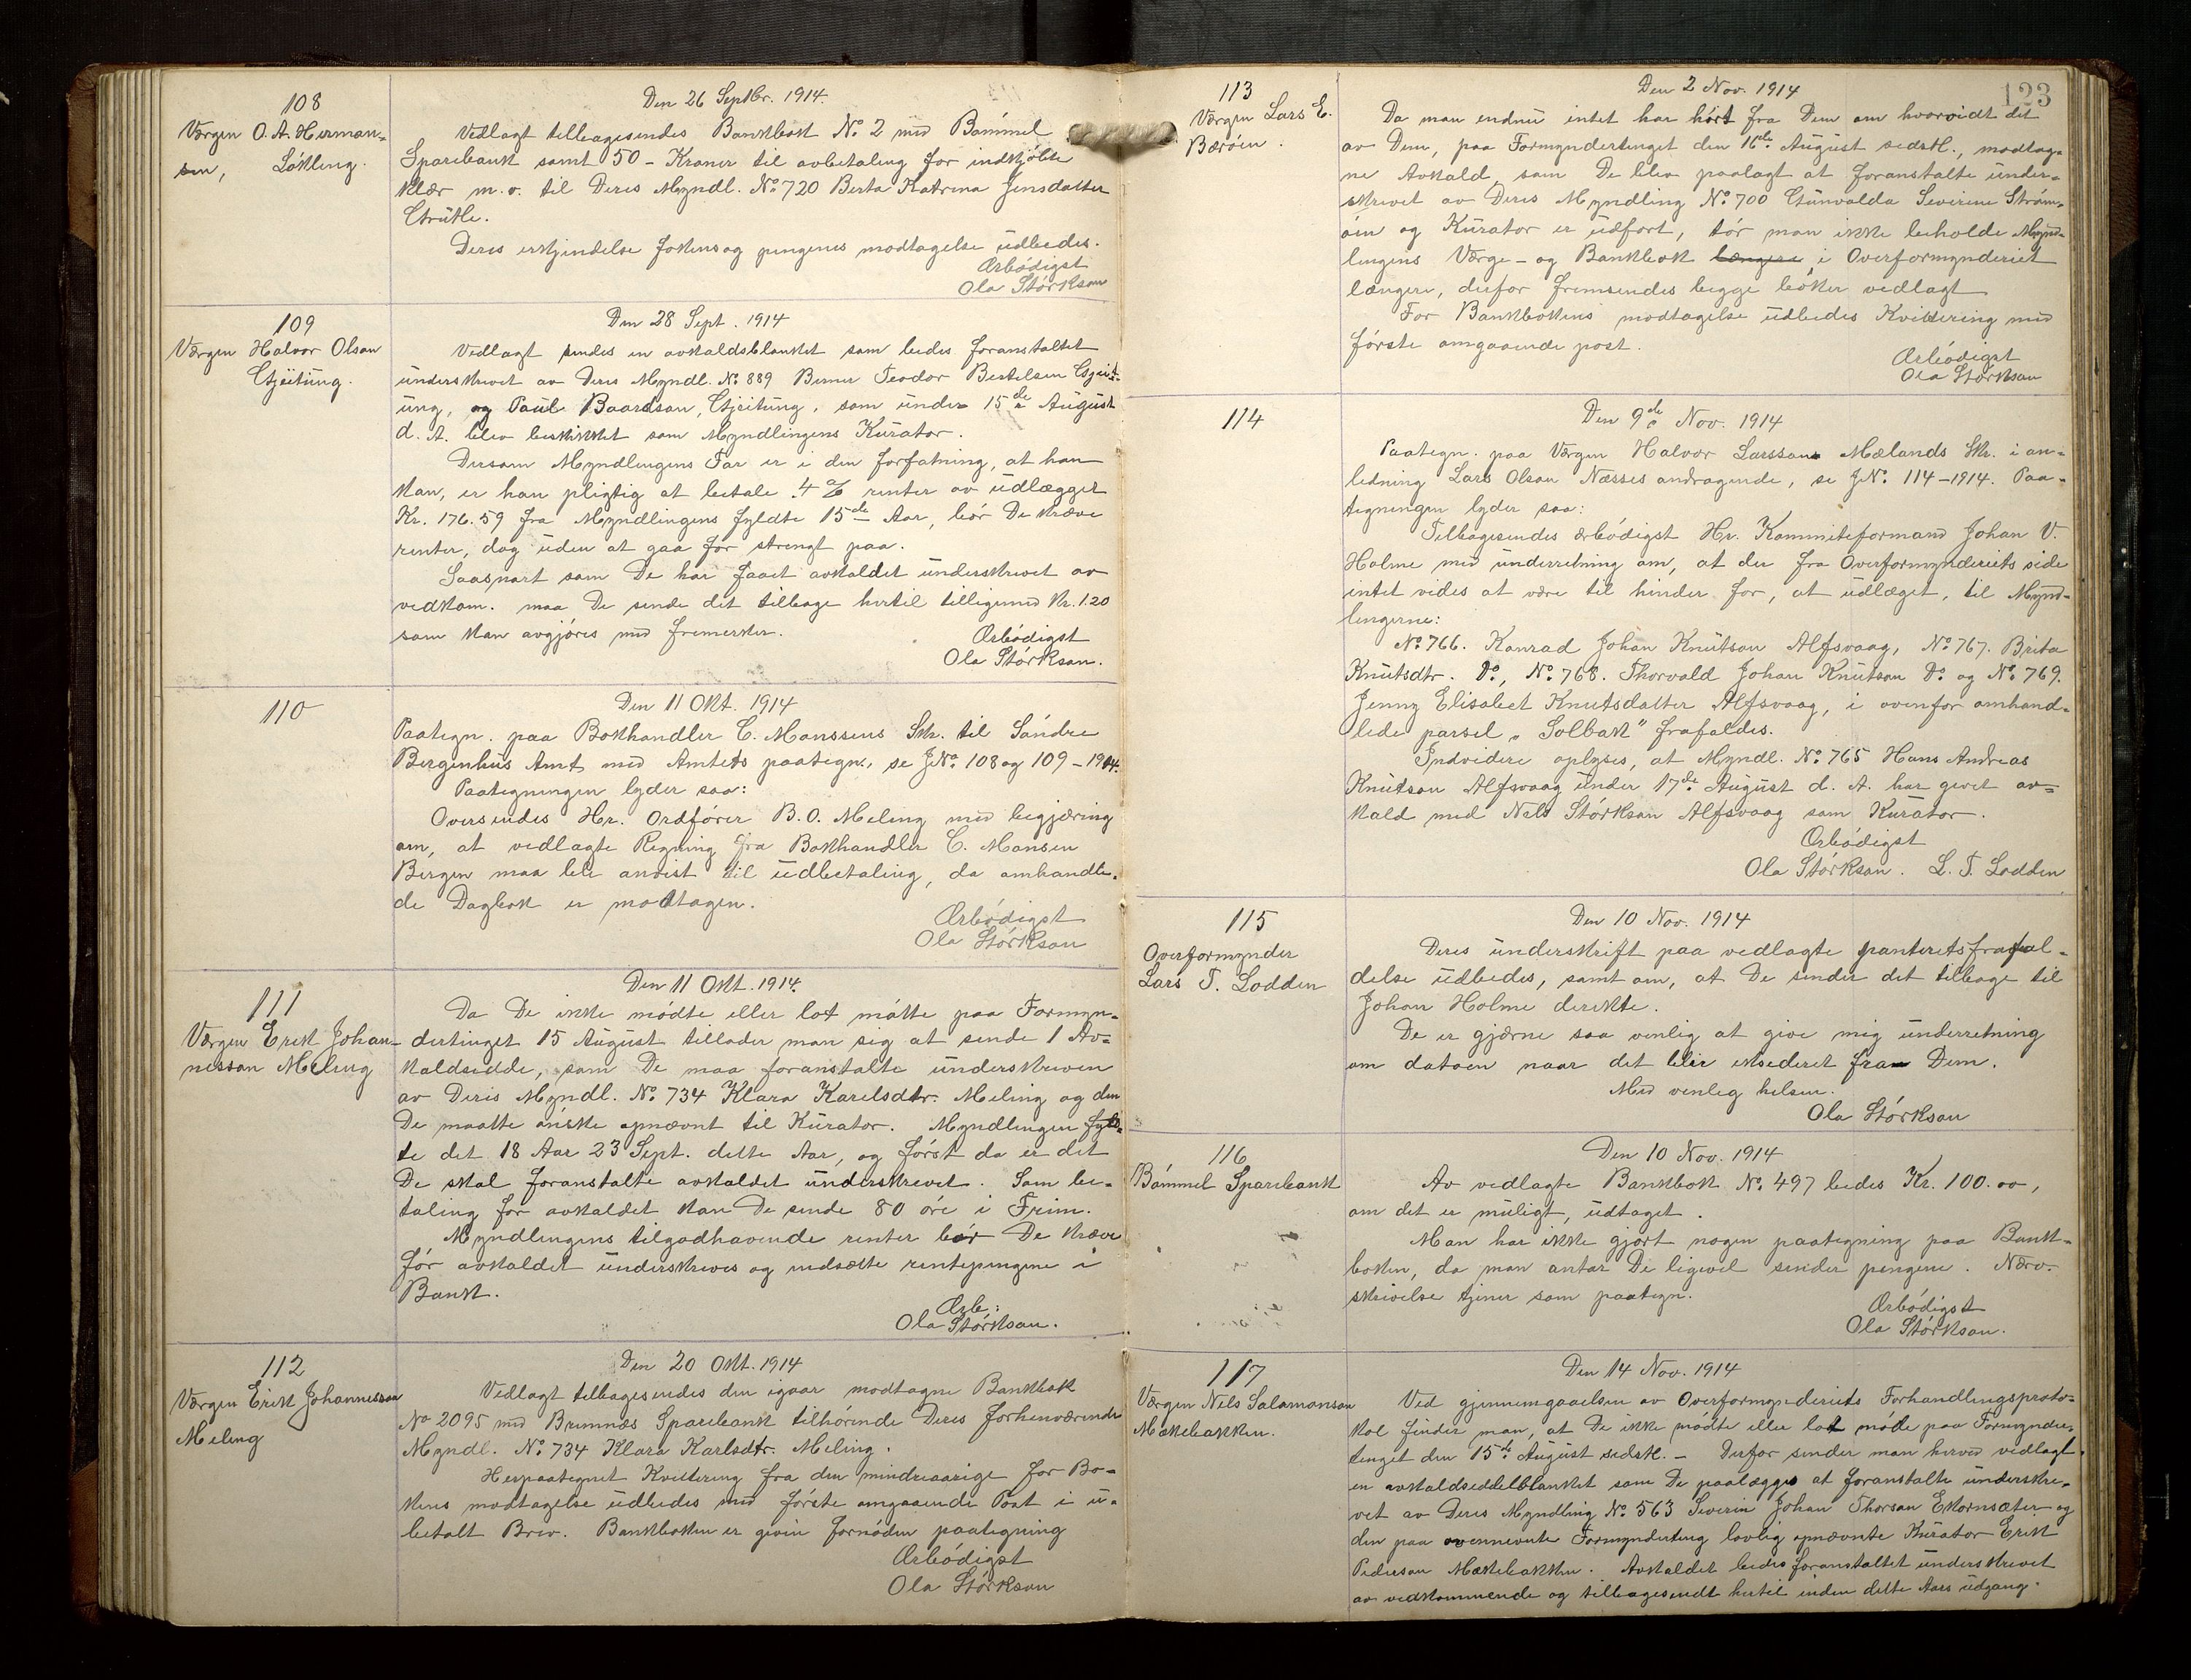 108
Værgen O. A. Herman-
sen, Løkling.
Den 26 Septbr. 1914.
Vedlagt tilbagesendes Bankbok No 2 med Bømmel
Sparebank samt 50 - Kroner til avbetaling for indkjøbte
Klær m.v. til Deres Myndl. No 720 Berta Katrina Jensdatter
Deres erkjendelse for bokens og pengenes modtagelse udbedes.
Ærbødigst
Ola Størkson
109
Værgen Halvor Olson
Gjeitung.
Den 28 Sept. 1914
Vedlagt sendes en avkaldsblanket som bedes foranstaltet
underskrevet av Deres Myndl. No 889 Berner Teodor Bertelsen Gjeit-
ung, og Paul Baardson, Gjeitung, som under 15de August
d. A. blev beskikket som Myndlingens Kurator.
Dersom Myndlingens Far er i den forfatning, at han
kan, er han pligtig at betale 4 % renter av udlægget
Kr. 176.59 fra Myndlingens fyldte 15de Aar, bør De kræve
renter, dog uden at gaa for strengt paa.
Saasnart som De har faaet avkaldet underskrevet av
vedkom. maa De sende det tilbage hertil tilligemed Kr. 1.20
som kan avgjøres med frimerker.
Ærbødigst
Ola Størkson.
110
Den 11 Okt. 1914
Paategn. paa Bokhandler C. Monssens Skr. til Søndre
Bergenhus Amt med Amtets paategn., se JNo. 108 og 109 - 1914.
Paategningen lyder saa:
Oversendes Hr. Ordfører B. O. Meling med begjæring
om, at vedlagte Regning fra Bokhandler C. Monsen
Bergen maa blir anvist til udbetaling, da omhandle-
de Dagbok er modtagen.
Ærbødigst
Ola Størkson
111
Værgen Erik Johan-
nesson Meling
Den 11 Okt. 1914.
Da De ikke mødte eller lot møtte paa Formyn-
dertinget 15 August tillader man sig at sende 1 Av-
kaldsedde, som De maa foranstalte underskreven
av Deres Myndl. No 734 Klara Karelsdtr. Meling og den
De maatte ønske opnævnt til Kurator. Myndlingen fyld-
te det 18 Aar 23 Sept. dette Aar, og først da er det
De skal foranstalte avkaldet underskrevet. Som be-
taling for avkaldet kan De sende 80 øre i Frim.
Myndlingens tilgodhavende renter bør De kræve
før avkaldet underskrives og indsætte rentepengene i
Bank.
Ærb:
Ola Størkson.
112
Værgen Erik Johannesson
Meling
Den 20 Okt. 1914
Vedlagt tilbagesendes den igaar modtagne Bankbok
No 2095 med Bremnæs Sparebank tilhørende Deres forhenværende
Myndl. No 734 Klara Karlsdtr. Meling.
Herpaategnet Kvittering fra den mindreaarige for Bo-
kens modtagelse udbedes med første omgaaende Post i u-
betalt Brev. Bankboken er given fornøden paategning
Ærbødigst
Ola Størkson
123
113
Værgen Lars E.
Barøen.
Den 2 Nov. 1914
Da man endnu intet har hørt fra Dem om hvorvidt det
av Dem, paa Formyndertinget den 16de August sidstl., modtag-
ne Avkald, som De blev paalagt at foranstalte under-
skrevet av Deres Myndling No 700 Gunvalda Severine Strøm-
øen og Kurator er udført, tør man ikke beholde Mynd-
lingens Værge- og Bankbok længere i Overformynderiet
længere, derfor fremsendes begge bøker vedlagt
For Bankbokens modtagelse udbedes Kvittering med
første omgaaende post.
Ærbødigst
Ola Størkson
114
Den 9de Nov. 1914
Paategn. paa Værgen Halvor Larssons Mælands Skr. i an-
ledning Lars Olson Næsses andragende, se JNo. 114-1914. Paa-
tegningen lyder saa:
Tilbagesendes ærbødigst Hr. Kommiteformand Johan V.
Holme med underretning om, at der fra Overformynderiets side
intet vides at være til hinder for, at udlæget, til Mynd-
lingerne:
No 766. Konrad Johan Knutson Alfsvaag, No 767. Brita
Knutsdtr. Do, No 768. Thorvald Johan Knutson Do og No 769.
Jenny Elisabet Knutsdatter Alfsvaag, i ovenfor omhand-
lede parsel "Solbak" frafaldes.
Indvidere oplyses, at Myndl. No 765 Hans Andreas
Knutson Alfsvaag under 17de August d. A. har givet av-
kald med Nels Størkson Alfsvaag som Kurator.
Ærbødigst
Ola Størkson. L. T. Lodden
115
Overformynder
Lars T. Lodden
Den 10 Nov. 1914
Deres underskrift paa vedlagte panteretsfrafal-
delse udbedes, samt om, at De sender det tilbage til
Johan Holme direkte.
De er gjærne saa venlig at give mig underretning
om datoen naar det blir eksederet fra Dem.
Med venlig hilsen.
Ola Størkson
116
Bømmel Sparebank
Den 10 Nov. 1914
Av vedlagte Bankbok No. 497 bedes Kr. 100.00,
om det er muligt, udtaget.
Man har ikke gjort nogen paategning paa Bank-
boken, da man antar De ligevel sender pengene. Nærv.
skrivelse tjener som paategn.
Ærbødigst
Ola Størkson.
117
Værgen Nils Salamonson
Mækebakken.
Den 14 Nov. 1914
Ved gjennemgaaelsen av Overformynderiets Forhandlingsproto-
kol finder man, at De ikke mødte eller lot møde paa Formynder-
tinget den 15de August sidstl. - Derfor sender man herved vedlagt
en avkaldseddelblanket som De paalægges at foranstalte underskre-
vet av Deres Myndling No 563 Severin Johan Thorson Ekornsæter og
den paa ovennevnte Formynderting lovlig opnævnte Kurator Erik
Pederson Mækebakken. Avkaldet bedes foranstaltet underskrevet
av vedkommende og tilbagesendt hertil inden dette Aars udgang.